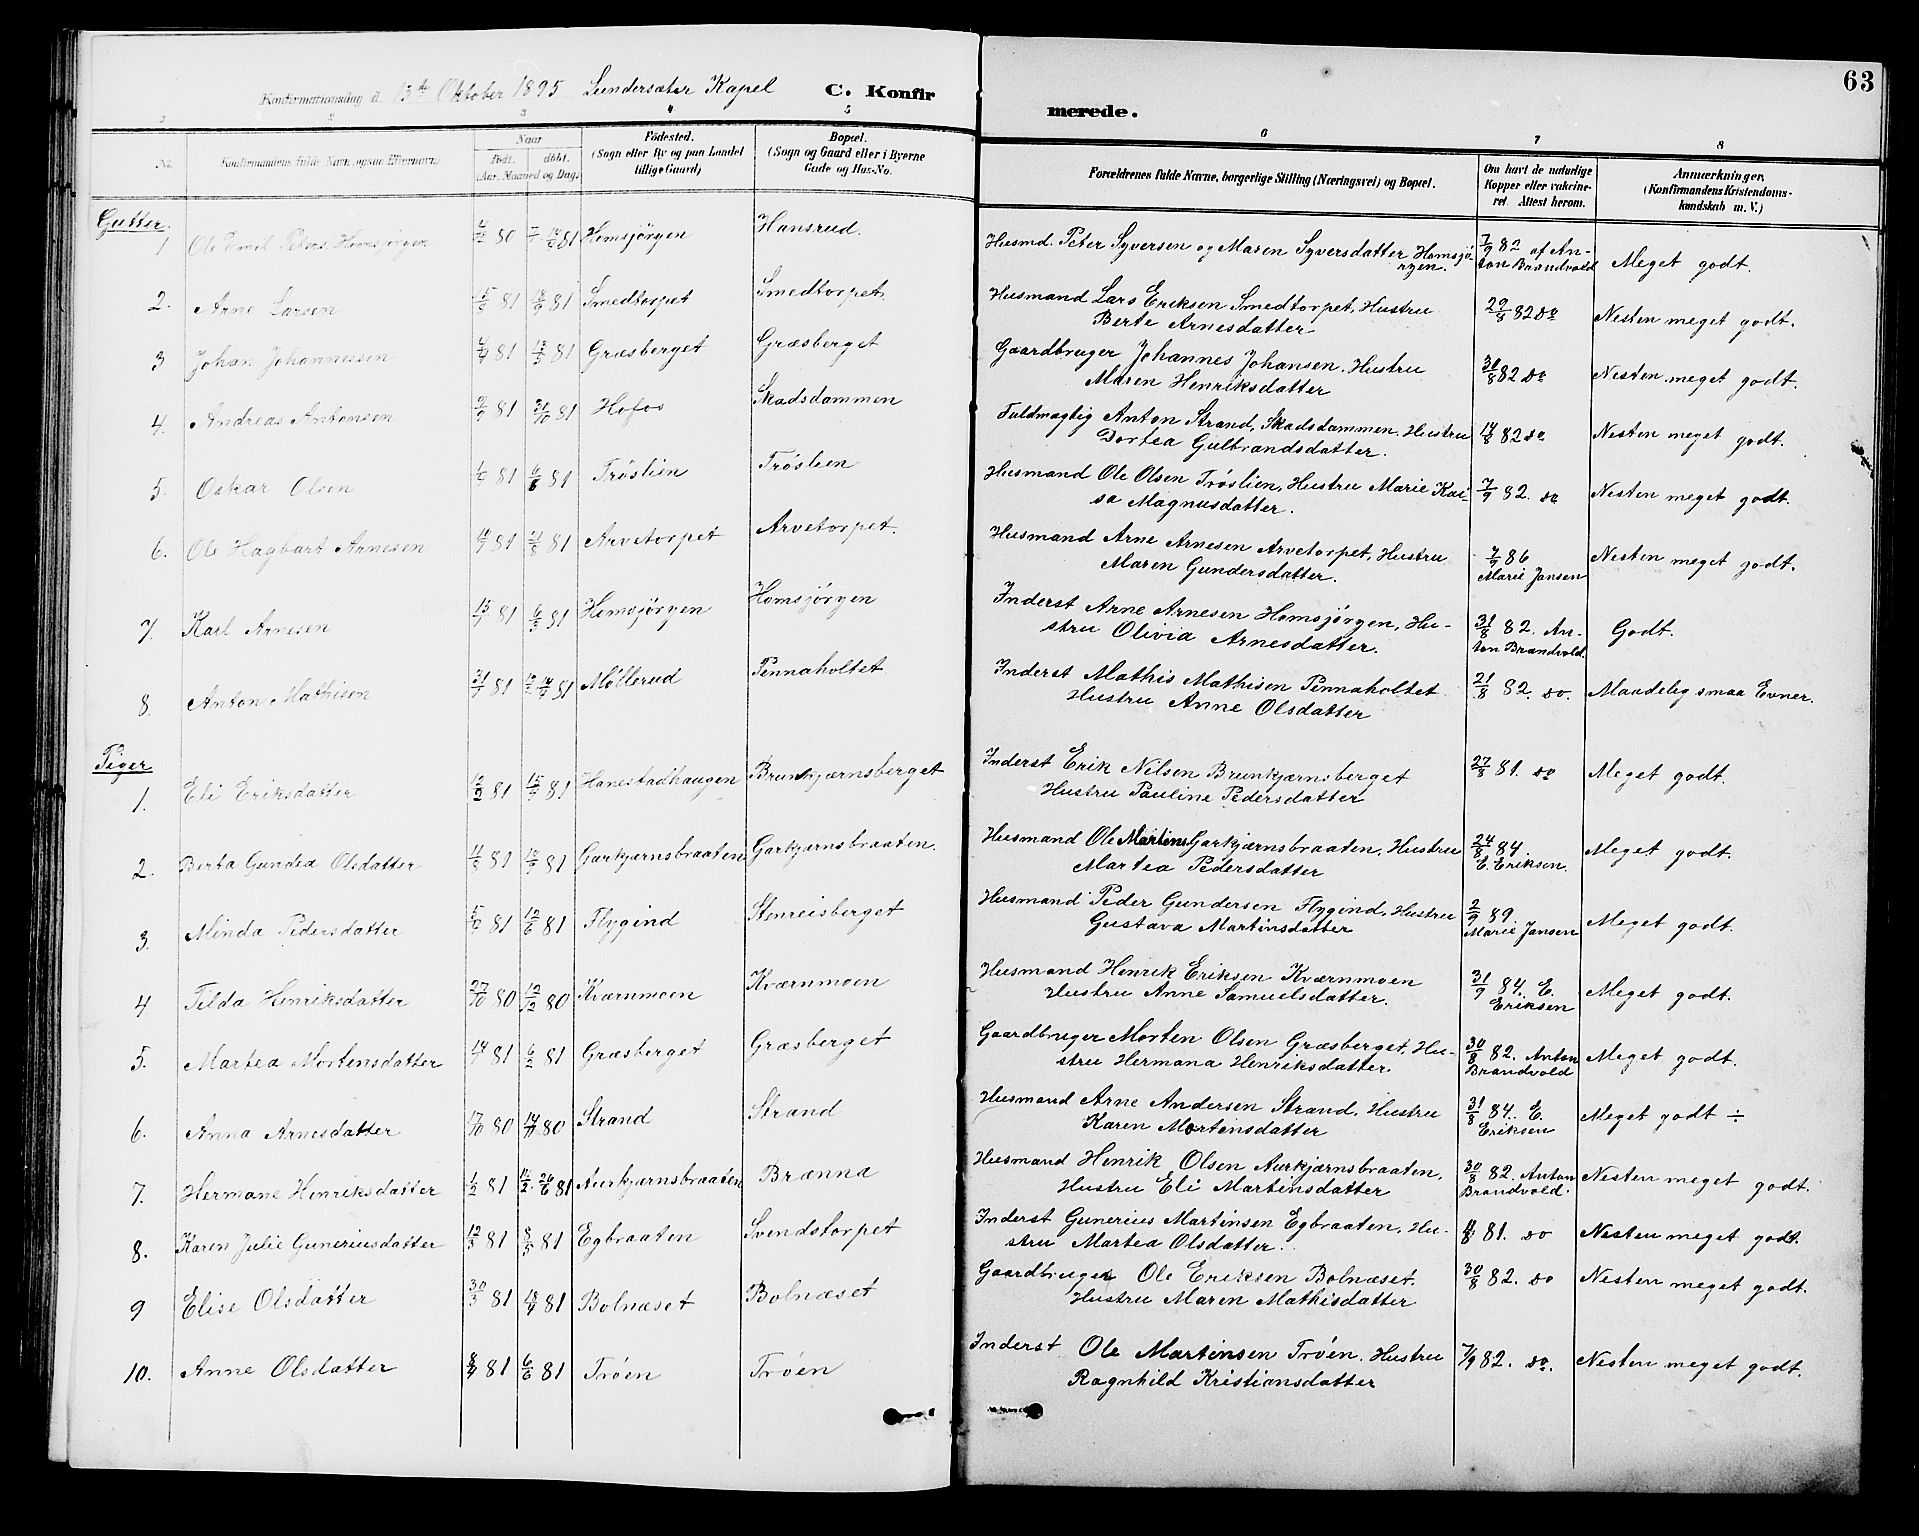 63
Konfirmationsdag d. 13de Oktober 1895 Lundersæter Kapel C. Konfirmerede.
1 2 3 4 5 6 7 8
Nr. Konfirmandens fulde Navn, ogsaa Efternavn. Naar født. døbt. (Aar, Maaned og Dag.) Fødested. (Sogn eller By og paa Landet tillige Gaard) Bopæl. (Sogn og Gaard eller i Byerne Gade og Hus-No. Forældrenes fulde Navne, borgerlige Stilling (Næringsvei) og Bopæl. Om havt de naturlige Kopper eller vakcineret. Attest herom. Anmærkninger. (Konfirmandens Kristendomskundskab m. V.)
Gutter.
1 Ole Emil Peters. Homsjørgen 80 81 Homsjørgen Hansrud. Husmd. Peter Syversen og Maren Syversdatter Homsjørgen. 7/9 82 af Anton Brandvold Meget godt.
2. Arne Larsen 81 18/9 81 Smedtorpet Smedtorpet. Husmand Lars Eriksen Smedtorpet, Hustru Berte Arnesdatter 29/8 82 do Nesten meget godt.
3 Johan Johannessen 81 81 Græsberget Græsberget Gaardbruger Johannes Johansen. Hustru Maren Henriksdatter 31/8 82 do Nesten meget godt.
4. Andreas Antonsen 81 30/10 81 Hofos Skadsdammen Fuldmægtig Anton Strand, Skadsdammen. Hustru Dortea Gulbrandsdatter. 14/8 82 do Nesten meget godt.
5. Oskar Olsen 81 6/6 81 Trøslien Trøslien Husmand Ole Olsen Trøslien, Hustru Marie Kaisa Magnusdatter. 7/9 82. do Nesten meget godt.
6. Ole Hagbart Arnesen 81 21/8 81 Arvetorpet Arvetorpet. Husmand Arne Arnesen Arvetorpet, Hustru Maren Gundersdatter. 7/9 86 Marie Jansen Nesten meget godt.
7. Karl Arnesen 15/1 81 6/3 81 Homsjørgen Homsjørgen Inderst Arne Arnesen Homsjørgen, Hustru Olivia Arnesdatter. 31/8 82. Anton Brandvold. Godt.
8. Anton Mathisen 31/1 81 81 Møllerud Pennaholtet Inderst Mathis Mathisen Pennaholtet Hustru Anne Olsdatter 21/8 82. do. Maadelig smaa Evner.
Piger
1. Eli Eriksdatter 81 81 Hanestadhaugen Brunkjærnsberget Inderst Erik Nilsen Brunkjærnsberget Hustru Pauline Pedersdatter 27/8 81. do Meget godt.
2. Berta Gundea Olsdatter 81 81 Garkjærnsbraaten Garkjærnsbraaten. Husmand Ole Martins. Garkjærnsbraaten. Hustru Martea Pedersdatter 24/8 84. E. Eriksen. Meget godt.
3. Minda Pedersdatter 81 12/6 81 Flygind Stenreisberget Husmand Peder Gundersen Flygind, Hustru Gustava Martinsdatter 2/9 89. Marie Jansen Meget godt.
4 Tilda Henriksdatter 27/10 80 12/12 80 Kværnmoen Kværnmoen Husmand Henrik Eriksen Kværnmoen Hustru Anne Samuelsdatter. 31/9 84. E. Eriksen Meget godt.
5. Martea Mortensdatter 14/1 81 6/2 81 Græsberget Græsberget Gaardbruger Morten Olsen Græsberget, Hustru Hermana Henriksdatter. 30/8 82. Anton Brandvold Meget godt.
6. Anna Arnesdatter 17/10 80 14/11 80 Strand Strand Husmand Arne Andersen Strand, Hustru Karen Mortensdatter 31/8 84. E. Eriksen Meget godt ÷
7. Hermane Henriksdatter 1/2 81 26/6 81 Aurkjærnsbraaten Brænna Husmand Henrik Olsen Aurkjærnsbraaten, Hustru Eli Martinsdatter 30/8 82. Anton Brandvold. Nesten meget godt.
8. Karen Julie Guneriusdatter 12/3 81 8/5 81 Egbraaten Svendstorpet Inderst Gunerius Martinsen Egbraaten, Hustru Martea Olsdatter. 81. do Nesten meget godt.
9 Elise Olsdatter 30/3 81 81 Bolnæset Bolnæset Gaardbruger Ole Eriksen Bolnæset. Hustru Maren Mathisdatter 30/8 82. do Nesten meget godt.
10. Anne Olsdatter 81 6/6 81 Trøen Trøen Inderst Ole Martinsen Trøen. Hustru Ragnhild Kristiansdatter 7/9 82. do. Nesten meget godt.